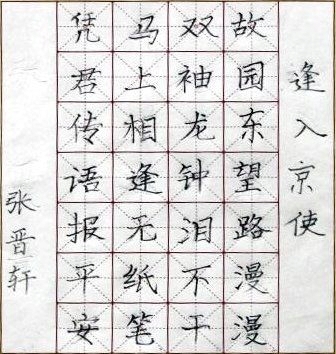 逢入京使
故园东望路漫漫
双袖龙钟泪不干
马上相逢无纸笔
凭君传语报平安
张晋轩